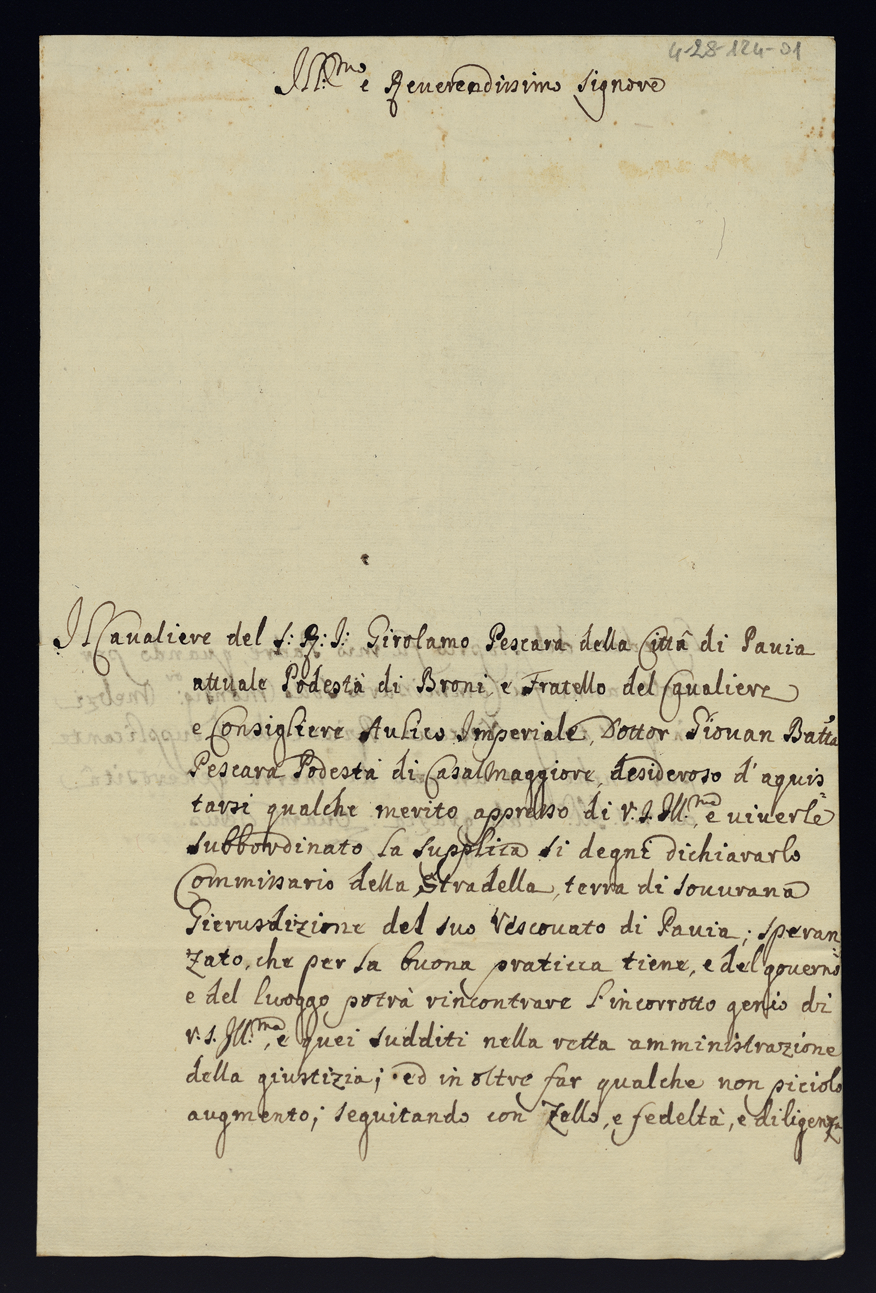 4-28-124-01
Ill:mo e Reverendissimo Signore
Il Caualiere del S: R: I: Girolamo Pescara della Città di Pauia
attuale Podestà di Broni, e Fratello del Caualiere
e Consigliere Aulico Imperiale, Dottor Giouan Batta
Pescara Podestà di Casalmaggiore, desideroso d'aquis
tarsi qualche merito appresso di V.S. Ill:ma, e uiuerle
subbordinato La supplica si degni dichiararlo
Commissario della Stradella, terra di souurana
Gierusdizione del suo Vescouato di Pauia; speran
zato, che per La buona praticca tiene, e del governo
e del luoggo potrà rincontrare l'incorrotto genio di
V.S. Ill:ma, e quei sudditi nella retta amministrazione
della giustizia; ed in oltre far qualche non piciolo
augmento; seguitando con Zello, e fedeltà, e diligenza